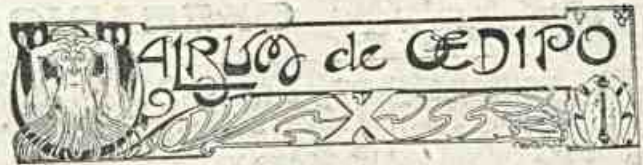 ALBUM de ŒDIPO